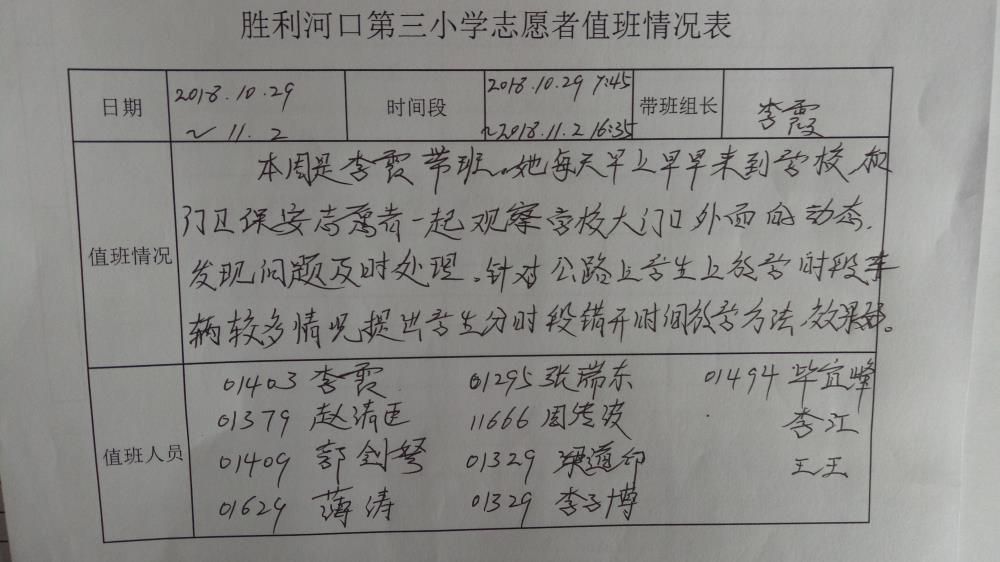 胜利河口第三小学志愿者值班情况表
日期 2018.10.29 ~ 11.2 时间段 2018.10.29 7:45 ~2018.11.2 16:35 带班组长 李霞
值班情况
本周是李霞带班。她每天早上早早来到学校,和
门卫保安志愿者一起观察学校大门口外面的动态,
发现问题及时处理。针对公路上学生上放学时段车
辆较多情况提出学生分时段错开时间放学方法,效果好。
值班人员
01403 李霞 01295 张瑞东 01494 毕宜峰
01379 赵清臣 11666 周传波 李江
01409 郭剑 01329 梁道 王玉
01629 薄涛 01329 李子博